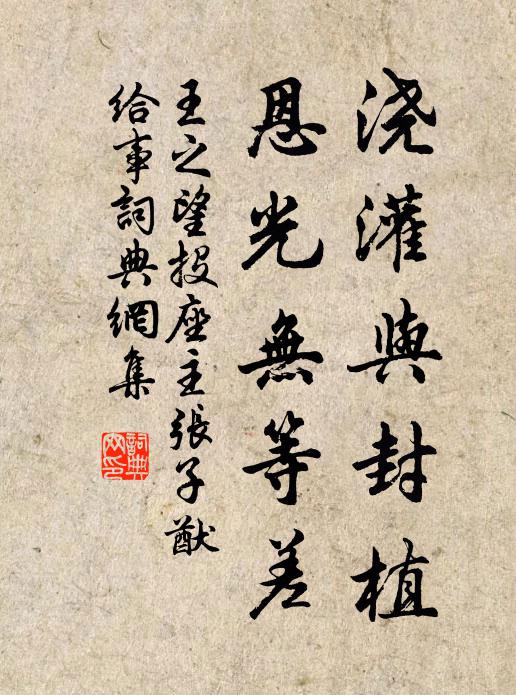 浇灌與封植
恩光無等差
王之望投座主張子猷
给事詞典網集
詞典
网印